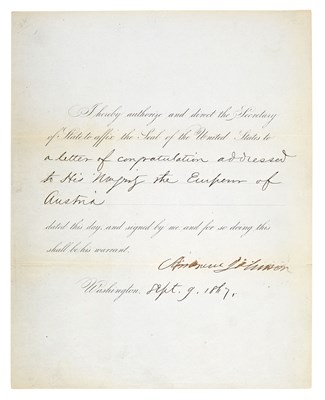 I hereby authorize and direct the Secretary
of State to affix the Seal of the United States to
a letter of congratulation addressed
to His Majesty the Emperor of
Austria
dated this day, and signed by me and for so doing this
shall be his warrant.
Andrew Johnson
Washington, Sept. 9. 1867.